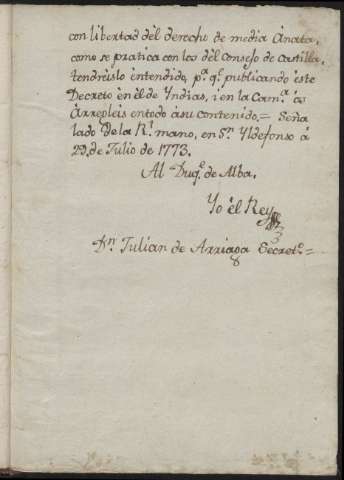 con libertad dél derecho de media ànata,
como se pratica con los dél Consejo de Castilla,
tendréislo èntendido, p.ª q.e publicando éste
Decreto èn él de Yndias, i èn la Cam.ª ós
Arregleis èn todo à su contenido. = Seña
lado de la R.l mano, en S.n Yldefonso á
29, de Julio de 1773.
Al Duq.e de Alba.
Yo él Rey
D.n Julian de Arriaga Secret.o =